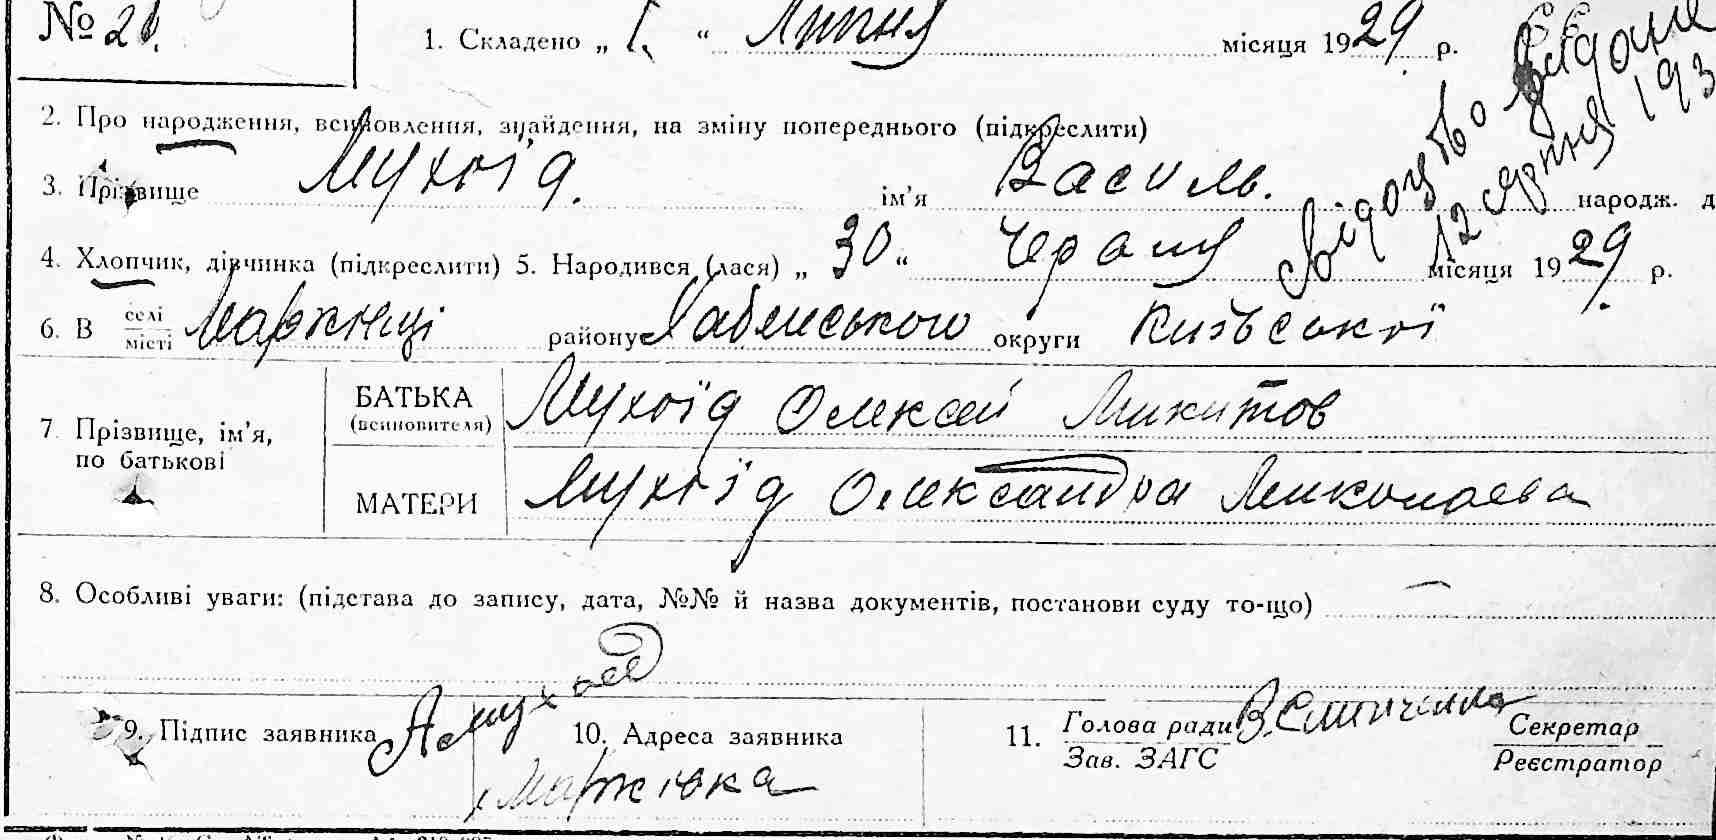 № 21.
1. Складено „ 1. “ Липня місяця 1929 р.
Свідоцтво видане
12 серпня 193
2. Про народження, всиновлення, знайдення, на зміну попереднього (підкреслити)
3. Прізвище Мухоїд. ім’я Василь. народж. д
4. Хлопчик, дівчинка (підкреслити) 5. Народився (лася) „ 30 “ Червня місяця 1929 р.
6. В селі місті районує Хабенського округи Київської
7. Прізвище, ім’я, по батькові
БАТЬКА (всиновителя) Мухоїд Олексей Микитов
МАТЕРИ Мухоїд Олександра Миколаева
8. Особливі уваги: (підстава до запису, дата, №№ й назва документів, постанови суду то-що) —
9. Підпис заявника А Мухоед
10. Адреса заявника
11. Голова ради Зав. ЗАГС
Секретар Реєстратор